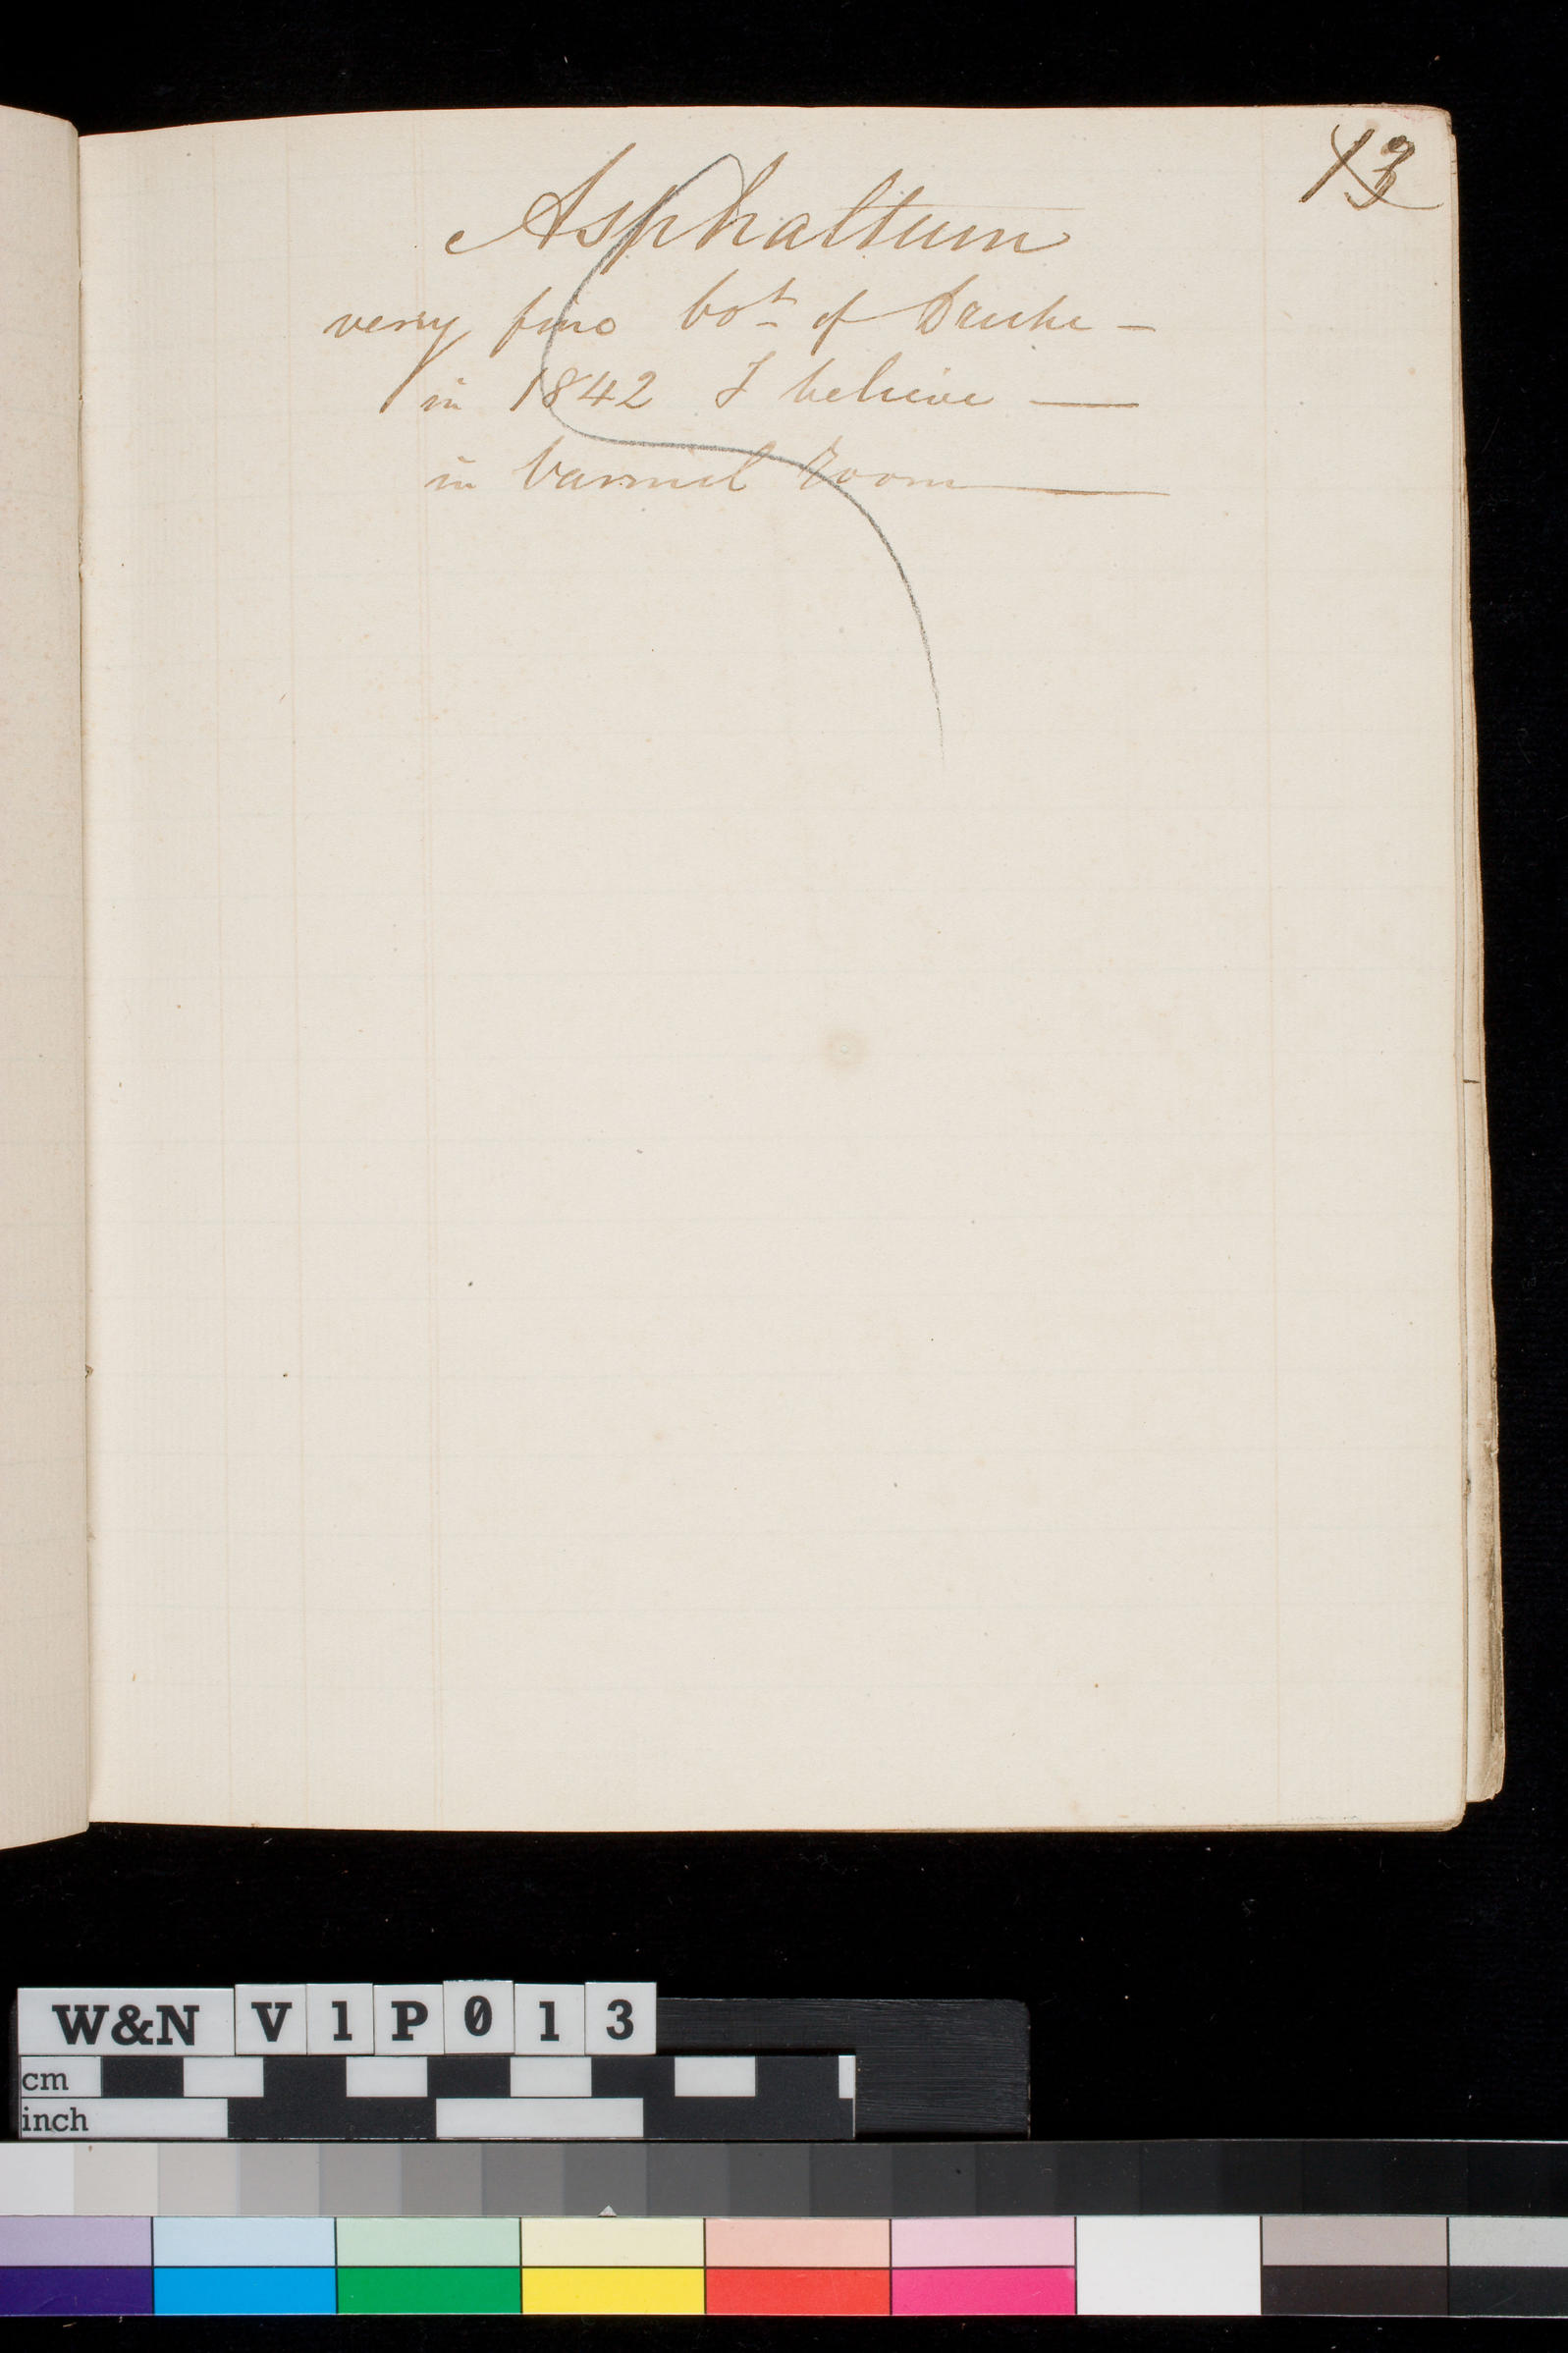 13
Asphaltum
very fine bot of Druke —
in 1842 I believe —
in Varnish Room —
W&N V1P013
cm
inch